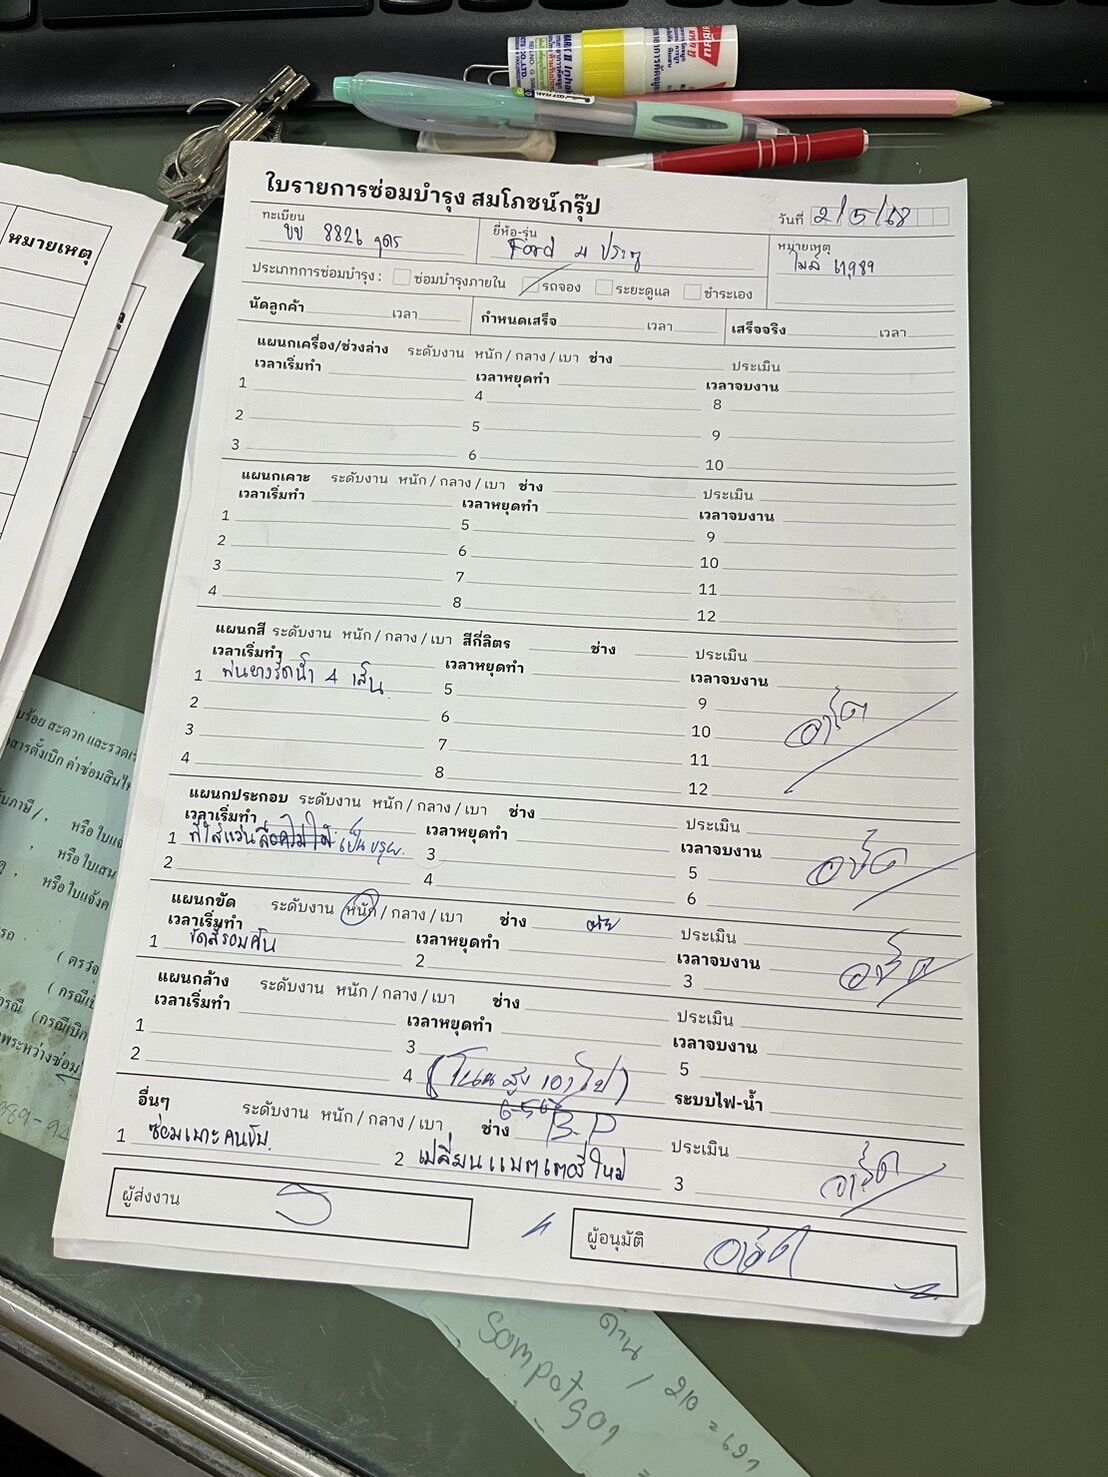 ใบรายการซ่อมบำรุง สมโภชน์กรุ๊ป
วันที่ 2/5/68
ทะเบียน
ขข 8826 อุดร
ยี่ห้อ-รุ่น
Ford 4 ประตู
หมายเหตุ
ไมล์
ประเภทการซ่อมบำรุง : ซ่อมบำรุงภายใน รถจอง ระยะดูแล ชำระเอง
นัดลูกค้า เวลา กำหนดเสร็จ เวลา เสร็จจริง เวลา
แผนกเครื่อง/ช่วงล่าง ระดับงาน หนัก / กลาง / เบา ช่าง ประเมิน
เวลาเริ่มทำ เวลาหยุดทำ เวลาจบงาน
1 4 8
2 5 9
3 6 10
แผนกเคาะ ระดับงาน หนัก / กลาง / เบา ช่าง ประเมิน
เวลาเริ่มทำ เวลาหยุดทำ เวลาจบงาน
1 5 9
2 6 10
3 7 11
4 8 12
แผนกสี ระดับงาน หนัก / กลาง / เบา สีกี่ลิตร ช่าง ประเมิน
เวลาเริ่มทำ เวลาหยุดทำ เวลาจบงาน
1 พ่นยางรีดน้ำ 4 เส้น 5 9
2 6 10
3 7 11
4 8 12
แผนกประกอบ ระดับงาน หนัก / กลาง / เบา ช่าง ประเมิน
เวลาเริ่มทำ เวลาหยุดทำ เวลาจบงาน
1 ที่ใส่แว่น เป็นขรุย 3 5
2 4 6
แผนกขัด ระดับงาน หนัก / กลาง / เบา ช่าง ประเมิน
เวลาเริ่มทำ เวลาหยุดทำ เวลาจบงาน
1 ขัดสีรอบคัน 2 3
แผนกล้าง ระดับงาน หนัก / กลาง / เบา ช่าง ประเมิน
เวลาเริ่มทำ เวลาหยุดทำ เวลาจบงาน
1 3 5
2 4 ระบบไฟ-น้ำ
B-P
อื่นๆ ระดับงาน หนัก / กลาง / เบา ช่าง ประเมิน
1 ซ่อมเบาะคนขับ 2 เปลี่ยนแบตเตอรี่ใหม่ 3
ผู้ส่งงาน
ผู้อนุมัติ
หมายเหตุ
Sompotgor